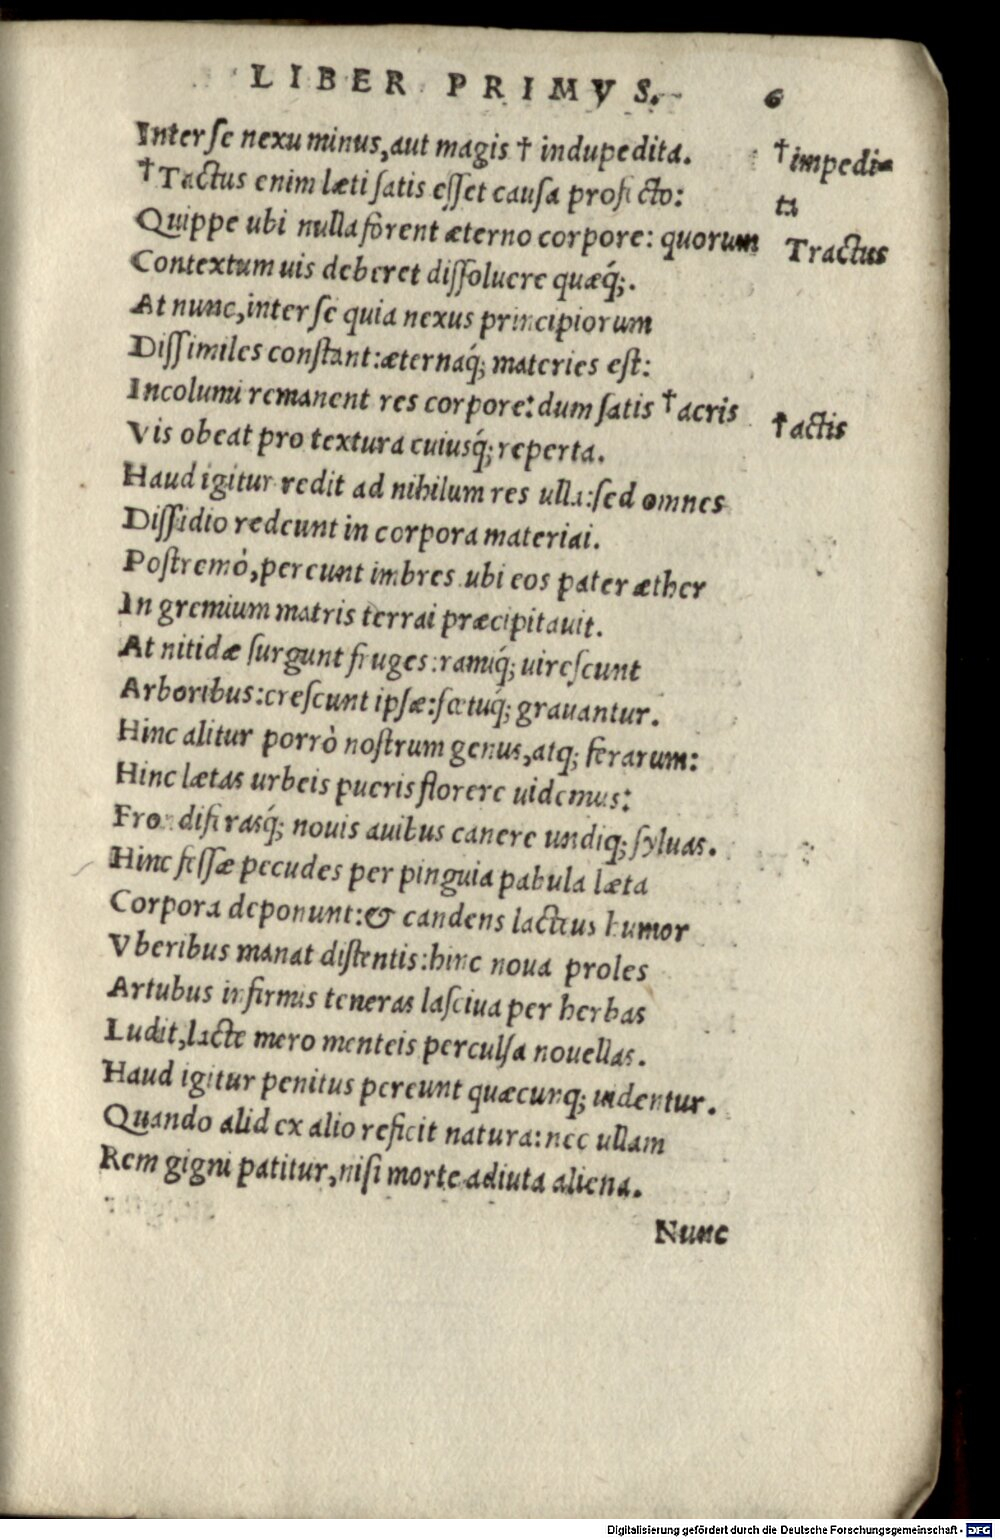 LIBER PRIMVS. 6
Inter se nexu minus, aut magis † indupedita. †impedi-
ta
†Tactus enim læti satis esset causa profecto:
Quippe ubi nulla forent æterno corpore: quorum Tractus
Contextum uis deberet dissoluere quæq́;.
At nunc, inter se quia nexus principiorum
Dissimiles constant: æternaq́; materies est:
Incolumi remanent res corpore: dum satis †acris †actis
Vis obeat pro textura cuiusq́; reperta.
Haud igitur redit ad nihilum res ulla: sed omnes
Dissidio redeunt in corpora materiai.
Postremò, pereunt imbres ubi eos pater æther
In gremium matris terrai præcipitauit.
At nitidæ surgunt fruges: ramiq́; uirescunt
Arboribus: crescunt ipsæ: fœtuq́; grauantur.
Hinc alitur porrò nostrum genus, atq; ferarum:
Hinc lætas urbeis pueris florere uidemus:
Frondiferasq́; nouis auibus canere undiq; syluas.
Hinc fessæ pecudes per pinguia pabula læta
Corpora deponunt: & candens lacteus humor
Vberibus manat distentis: hinc noua proles
Artubus infirmis teneras lasciua per herbas
Ludit, lacte mero menteis perculsa nouellas.
Haud igitur penitus pereunt quæcunq; uidentur.
Quando alid ex alio reficit natura: nec ullam
Rem gigni patitur, nisi morte adiuta aliena.
Nunc
Digitalisierung gefördert durch die Deutsche Forschungsgemeinschaft - DFG